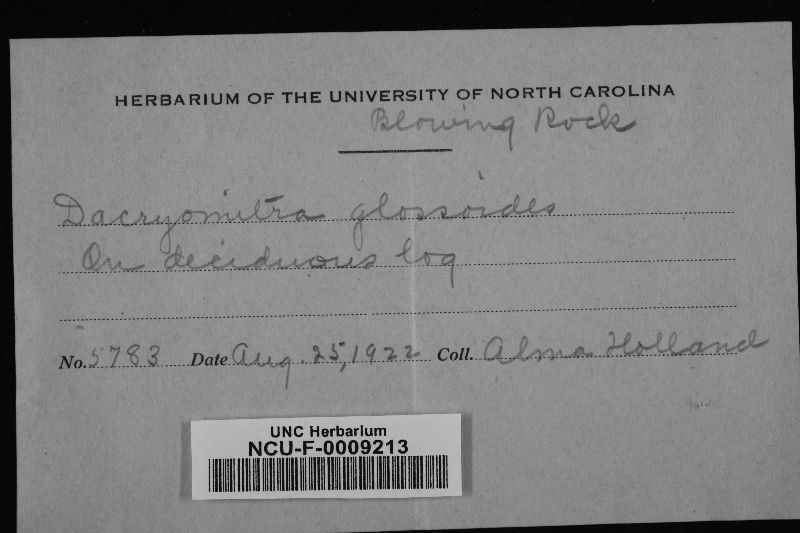 HERBARIUM OF THE UNIVERSITY OF NORTH CAROLINA
Blowing Rock
Dacryomitra glossoides
On deciduous log
No. 5783 Date Aug. 25, 1922 Coll. Alma Holland
UNC Herbarium
NCU-F-0009213